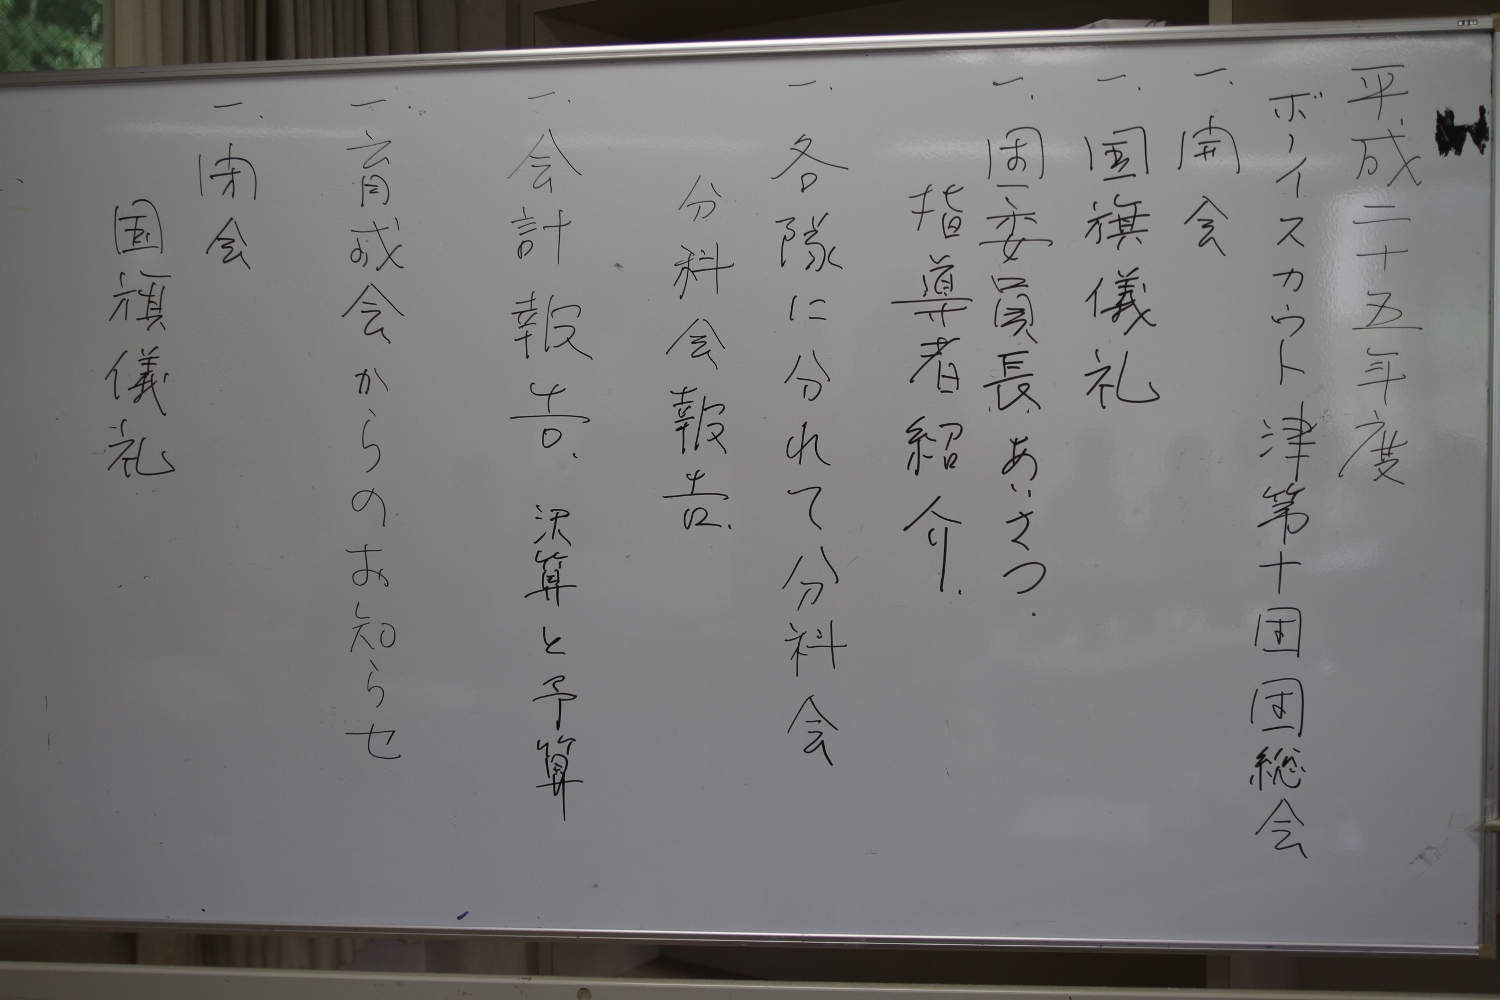 平成二十五年度
ボーイスカウト津第十団団総会
一、開会
一、国旗儀礼
一、団委員長あいさつ.
指導者紹介.
一、各隊に分れて分科会
分科会報告.
一、会計報告.決算と予算
一、育成会からのお知らせ
一、閉会
国旗儀礼